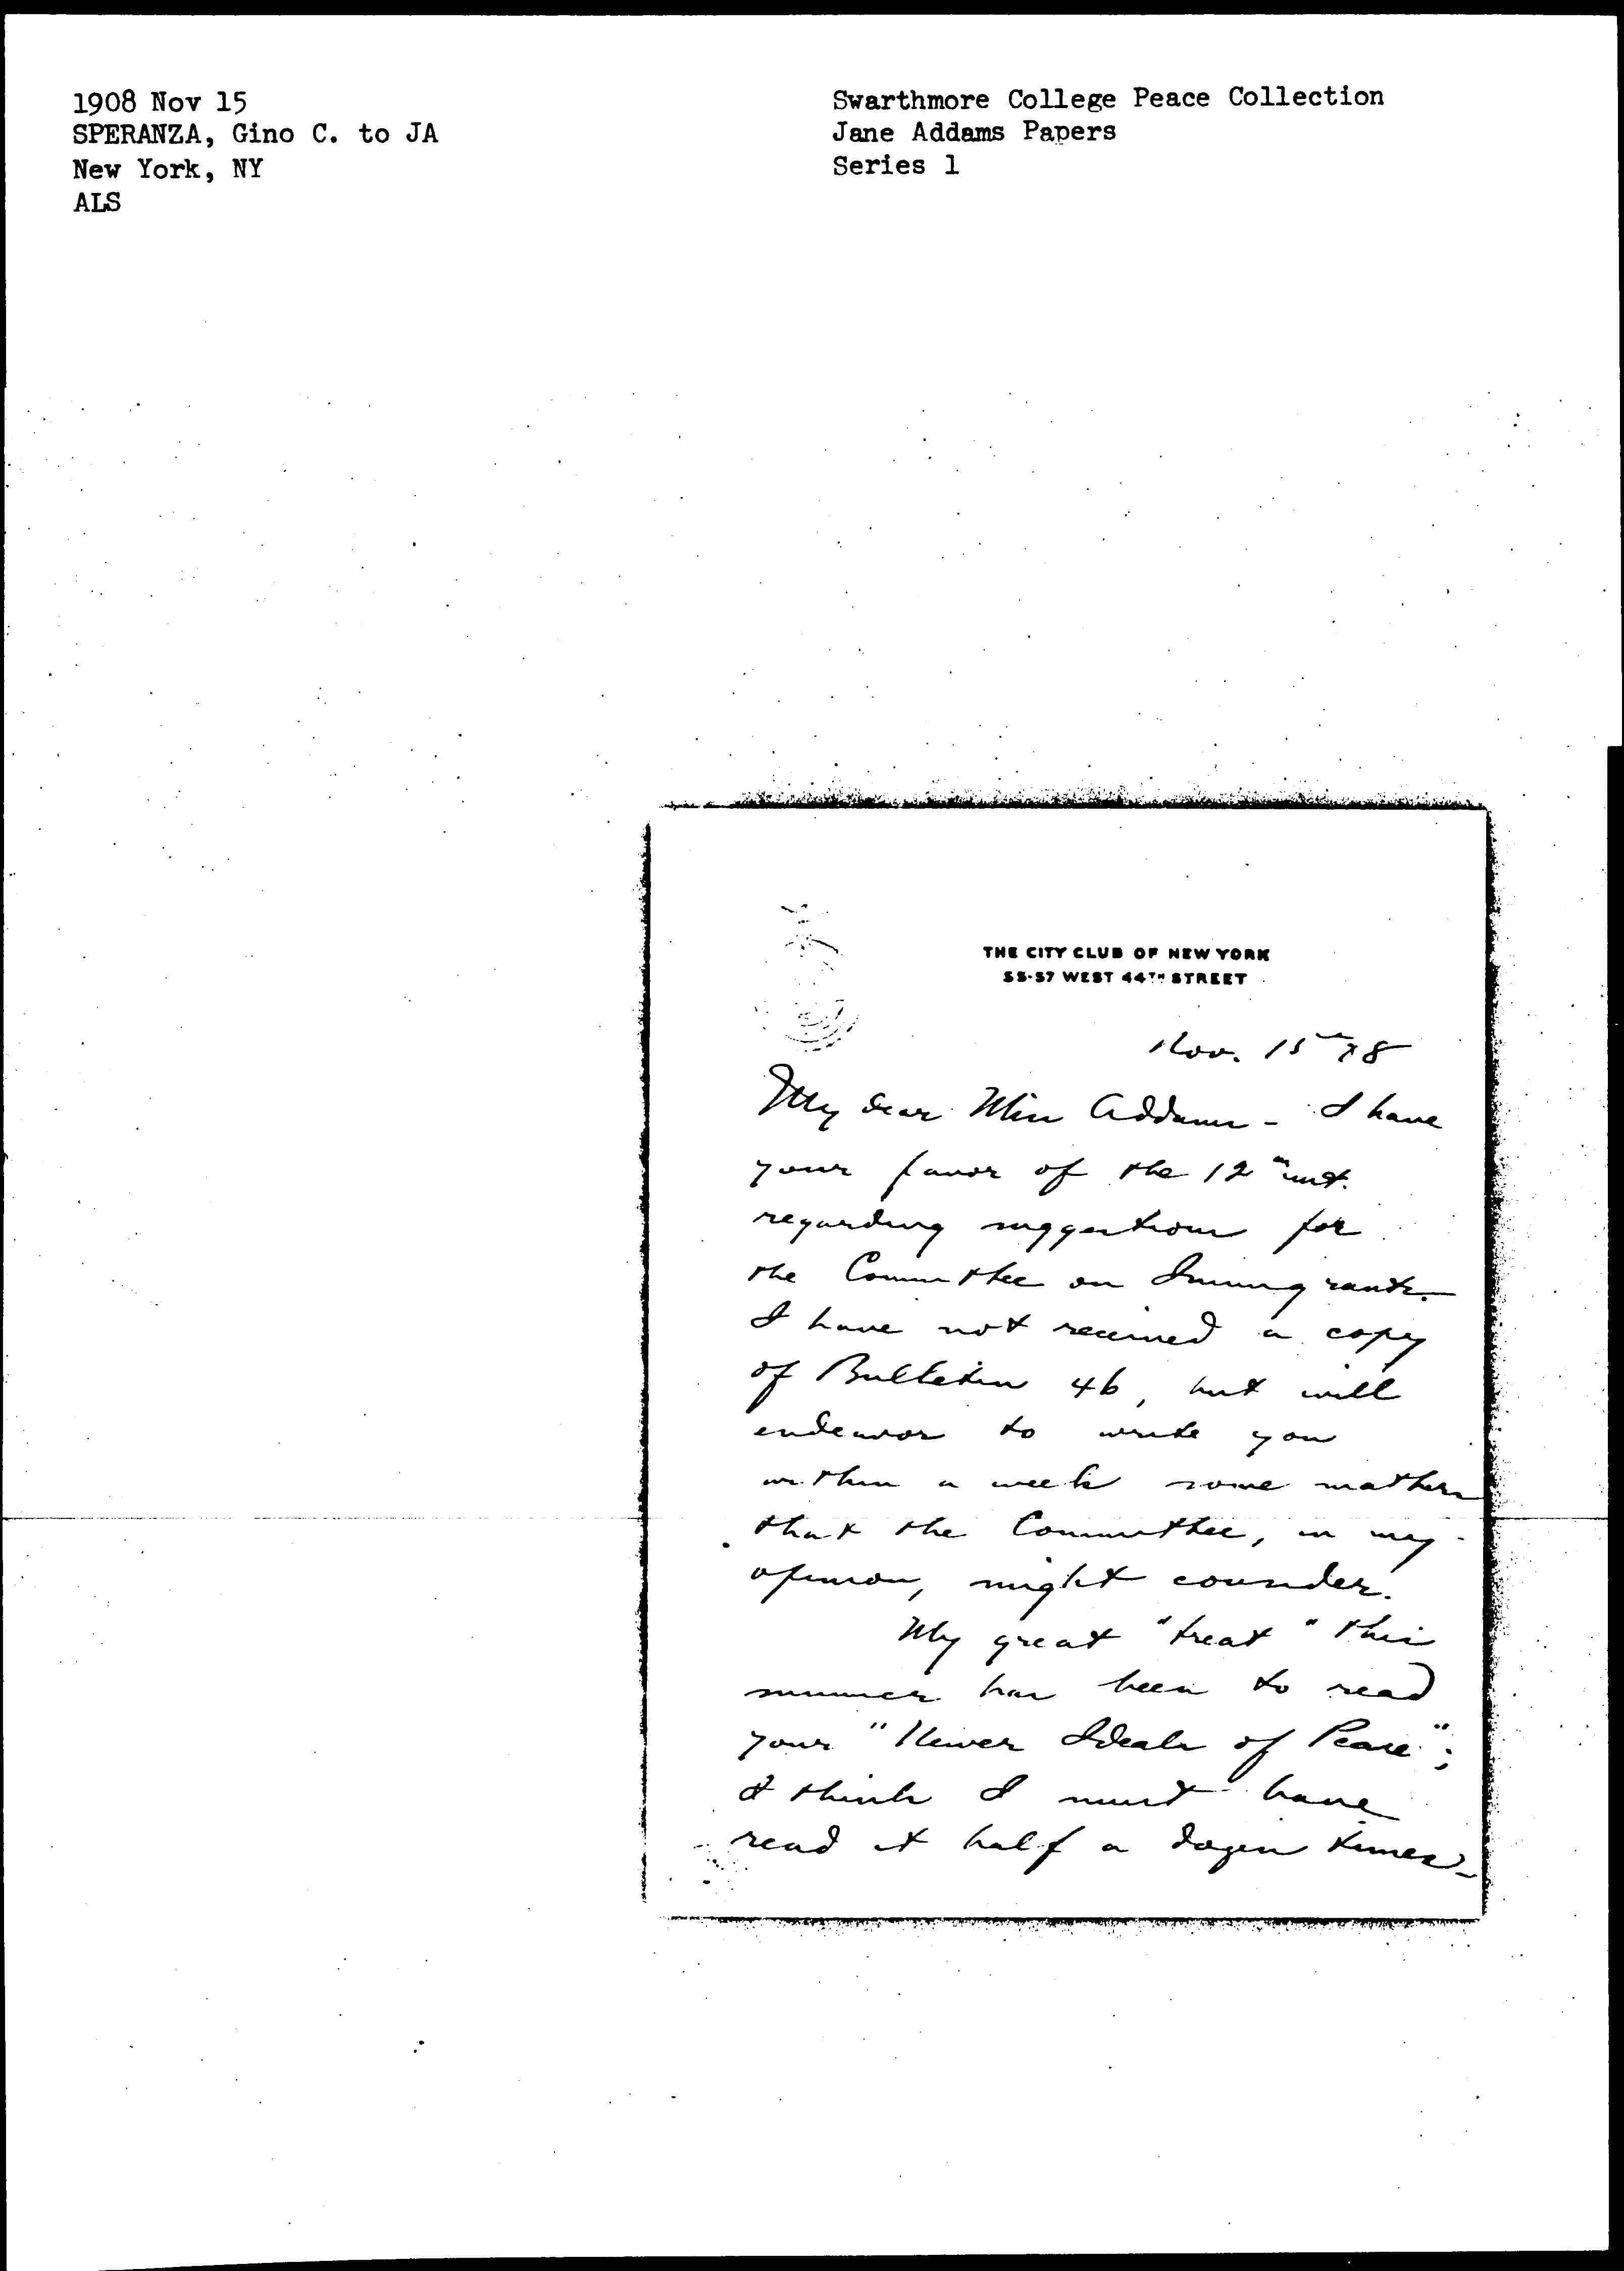 1908 Nov 15
SPERANZA, Gino C. to JA
New York, NY
ALS
Swarthmore College Peace Collection
Jane Addams Papers
Series 1
THE CITY CLUB OF NEW YORK
55-57 WEST 44TH STREET
Nov. 15th 8
My dear Miss Addams - I have
your favor of the 12th inst.
regarding suggestions for
the Committee on Immigrants.
I have not received a copy
of Bulletin 46, but will
endeavor to write you
within a week some matters
that the Committee, in my
opinion, might consider.
My great "treat" this
summer has been to read
your "Newer Ideals of Peace";
I think I must have
read it half a dozen times -